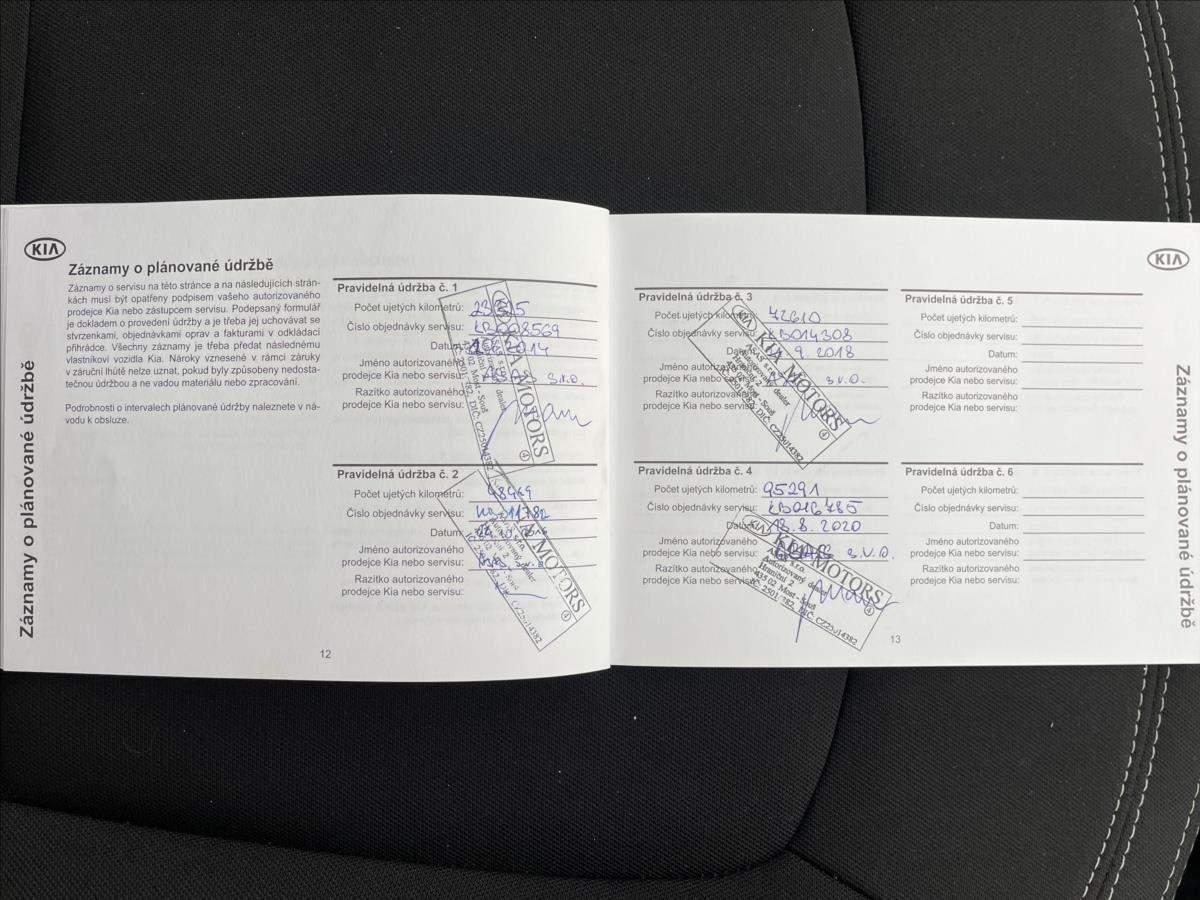 KIA
Záznamy o plánované údržbě
Záznamy o servisu na této stránce a na následujících strán-
kách musí být opatřeny podpisem vašeho autorizovaného
prodejce Kia nebo zástupcem servisu. Podepsaný formulář
je dokladem o provedení údržby a je třeba jej uchovávat se
stvrzenkami, objednávkami oprav a fakturami v odkládací
přihrádce. Všechny záznamy je třeba předat následnému
vlastníkovi vozidla Kia. Nároky vznesené v rámci záruky
v záruční lhůtě nelze uznat, pokud byly způsobeny nedosta-
tečnou údržbou a ne vadou materiálu nebo zpracování.
Podrobnosti o intervalech plánované údržby naleznete v ná-
vodu k obsluze.
Záznamy o plánované údržbě
Pravidelná údržba č. 1
Počet ujetých kilometrů:
Číslo objednávky servisu:
Datum: 2014
Jméno autorizovaného
prodejce Kia nebo servisu: s.r.o.
Razítko autorizovaného
prodejce Kia nebo servisu:
MOTORS
CZ25014382
Pravidelná údržba č. 2
Počet ujetých kilometrů: 48969
Číslo objednávky servisu:
Datum:
Jméno autorizovaného
prodejce Kia nebo servisu:
Razítko autorizovaného
prodejce Kia nebo servisu:
MOTORS
CZ25014382
12
Pravidelná údržba č. 3
Počet ujetých kilometrů: 72610
Číslo objednávky servisu: KB014308
Datum: 9. 2018
Jméno autorizovaného
prodejce Kia nebo servisu: s.r.o.
Razítko autorizovaného
prodejce Kia nebo servisu:
KIA MOTORS
s.r.o.
Autorizovaný dealer
Hraniční 2
435 02 Most - Souš
DIČ: CZ25014382
Pravidelná údržba č. 4
Počet ujetých kilometrů: 95291
Číslo objednávky servisu: KB016785
Datum: 18. 8. 2020
Jméno autorizovaného
prodejce Kia nebo servisu: s.r.o.
Razítko autorizovaného
prodejce Kia nebo servisu:
KIA MOTORS
s.r.o.
Autorizovaný dealer
Hraniční 2
435 02 Most - Souš
DIČ: CZ25014382
KIA
Pravidelná údržba č. 5
Počet ujetých kilometrů:
Číslo objednávky servisu:
Datum:
Jméno autorizovaného
prodejce Kia nebo servisu:
Razítko autorizovaného
prodejce Kia nebo servisu:
Pravidelná údržba č. 6
Počet ujetých kilometrů:
Číslo objednávky servisu:
Datum:
Jméno autorizovaného
prodejce Kia nebo servisu:
Razítko autorizovaného
prodejce Kia nebo servisu:
Záznamy o plánované údržbě
13